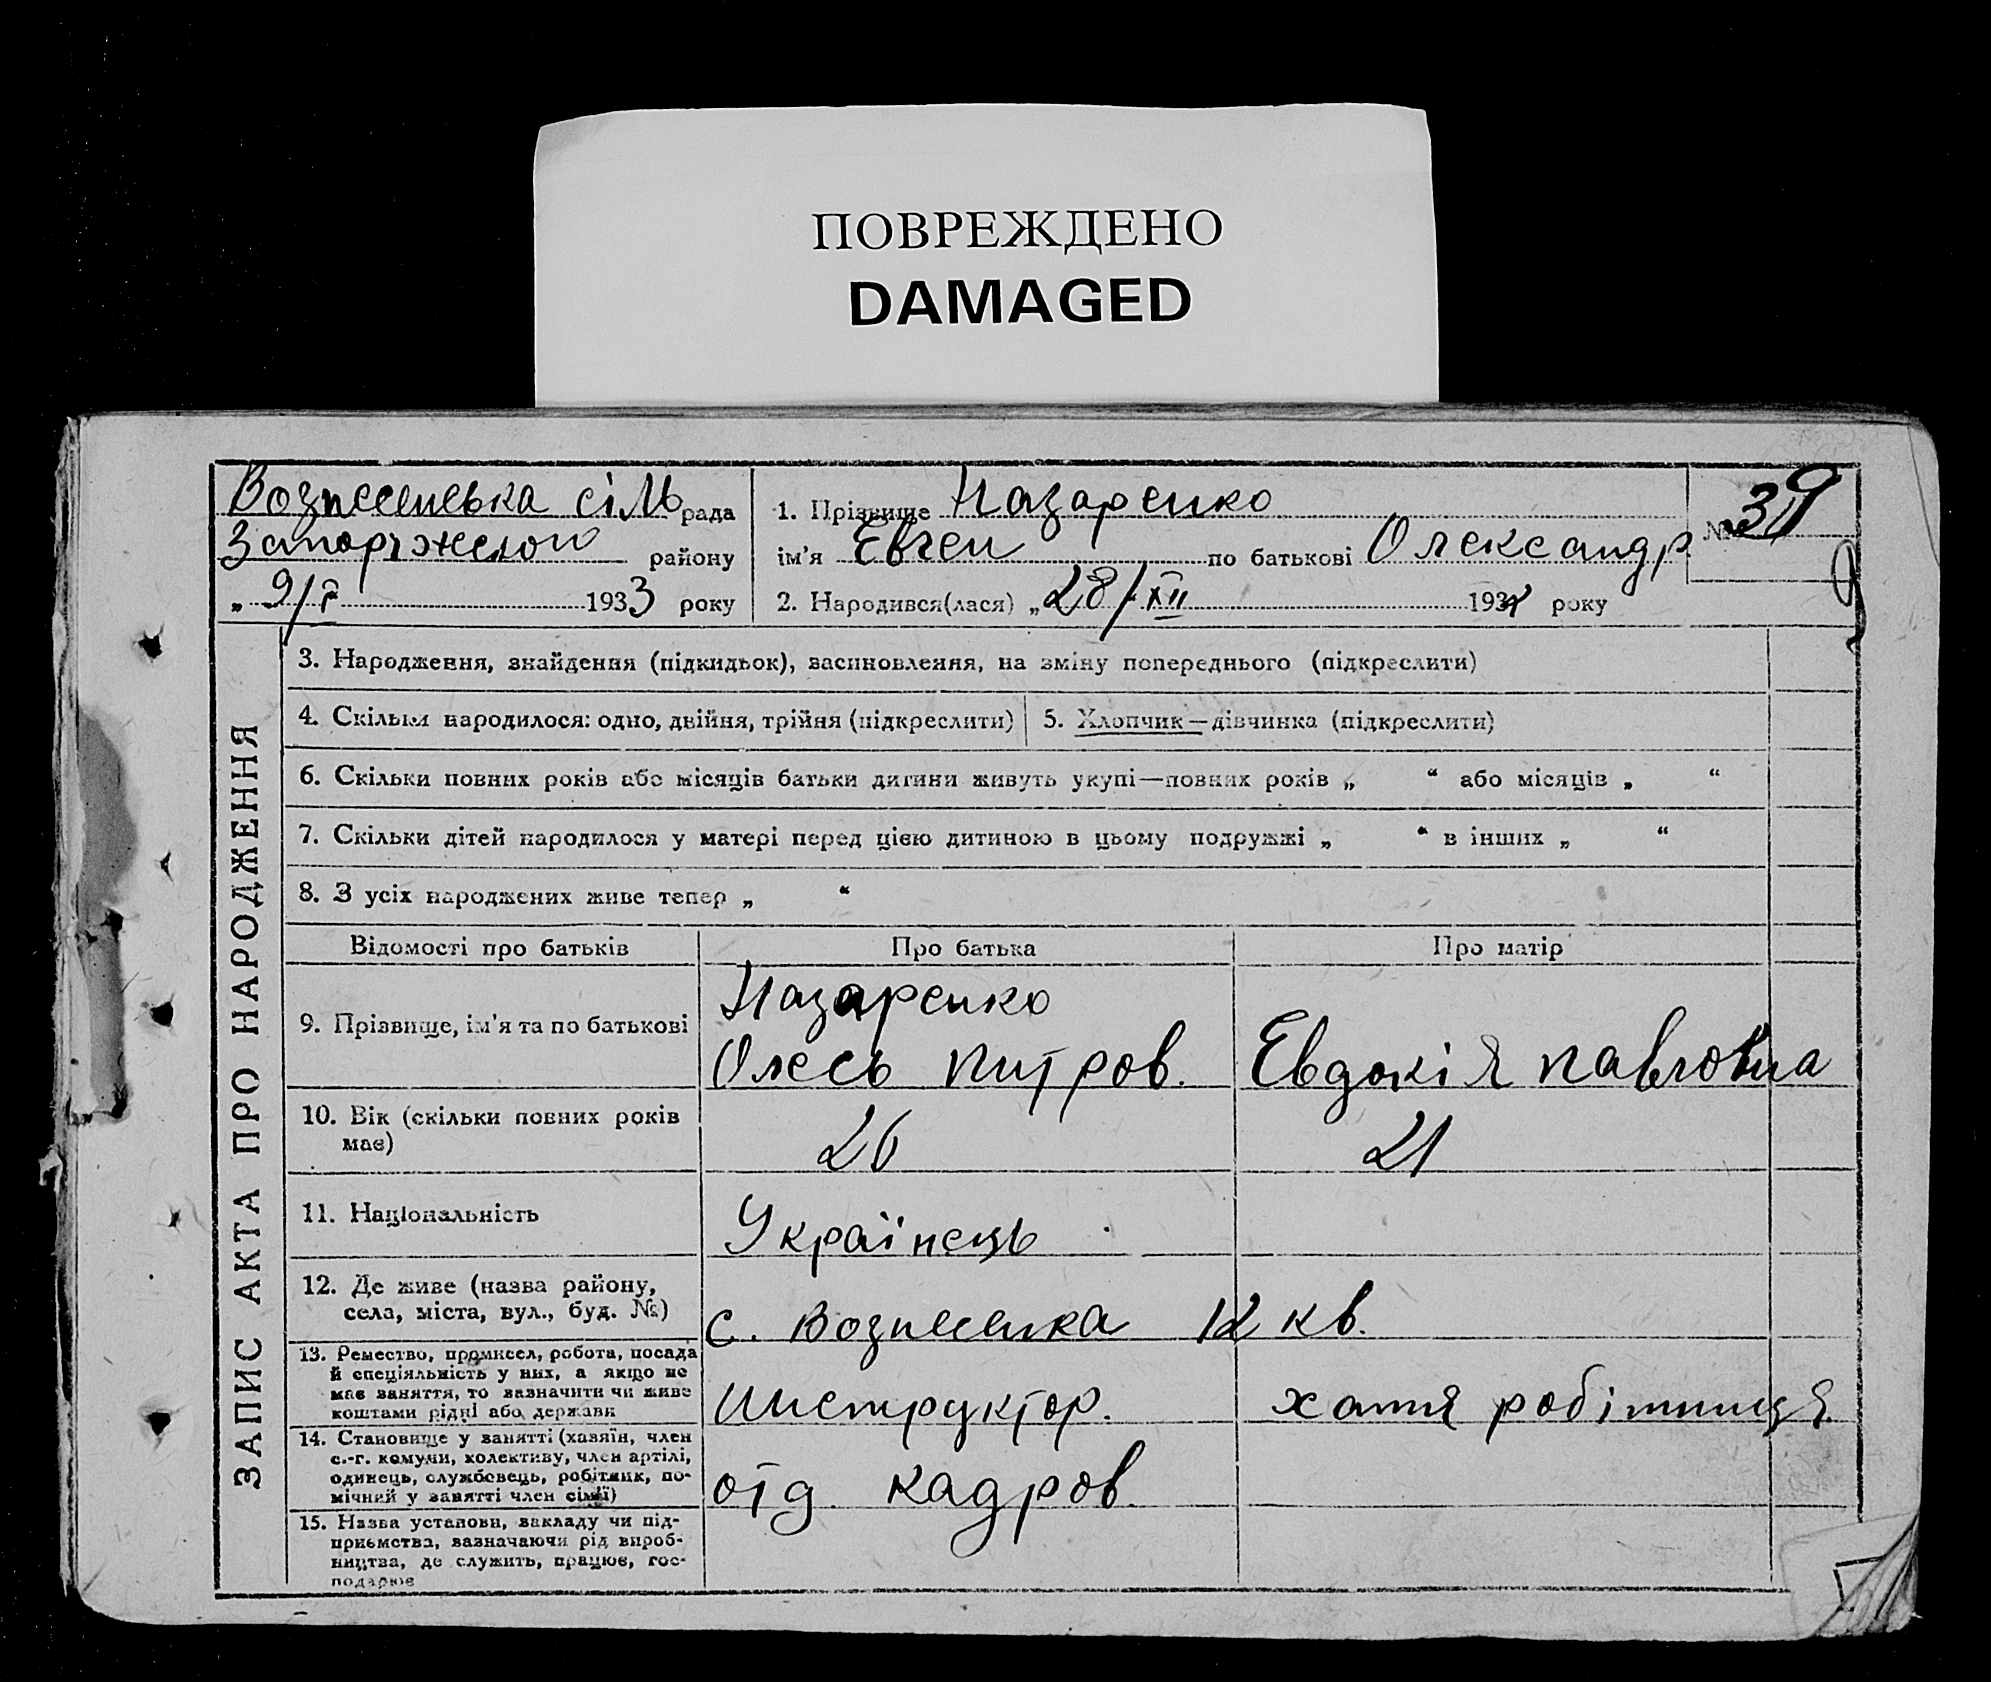 ПОВРЕЖДЕНО
DAMAGED
Вознесенська сіль рада
Запоріжского району
„ 9/I 1933 року
1. Прізвище Назаренко
ім'я Евген по батькові Олександр
2. Народився(лася) „ 28/XII 1932 року
№ 39
ЗАПИС АКТА ПРО НАРОДЖЕННЯ
3. Народження, знайдення (підкидьок), засиновлення, на зміну попереднього (підкреслити)
4. Скільки народилося: одно, двійня, трійня (підкреслити)
5. Хлопчик—дівчинка (підкреслити)
6. Скільки повних років або місяців батьки дитини живуть укупі—повних років „ “ або місяців „ “
7. Скільки дітей народилося у матері перед цією дитиною в цьому подружжі „ “ в інших „ “
8. З усіх народжених живе тепер „ “
Відомості про батьків Про батька Про матір
9. Прізвище, ім'я та по батькові
Назаренко
Олесь Питров. Евдокія Павловна
10. Вік (скільки повних років
має)
26 21
11. Національність
Українець
12. Де живе (назва району,
села, міста, вул., буд. №)
с. Вознесенка 12 кв.
13. Ремество, промисел, робота, посада
й спеціяльність у них, а якщо не
має заняття, то зазначити чи живе
коштами рідні або держави
Инструктор. хатня робітниця
14. Становище у занятті (хазяїн, член
с.-г. комуни, колективу, член артілі,
одинець, службовець, робітник, по-
мічний у занятті член сімї)
отд. кадров.
15. Назва установи, закладу чи під-
приємства, зазначаючи рід вироб-
ництва, де служить, працює, гос-
подарює